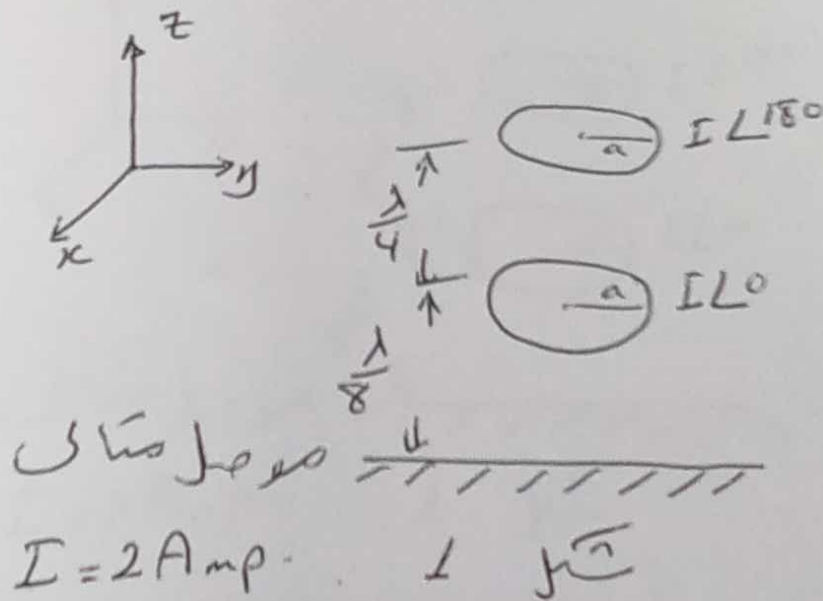 z
y
x
a I∠180
λ/4
a I∠0
λ/8
موصل مثالى
I = 2 Amp. شكل 1